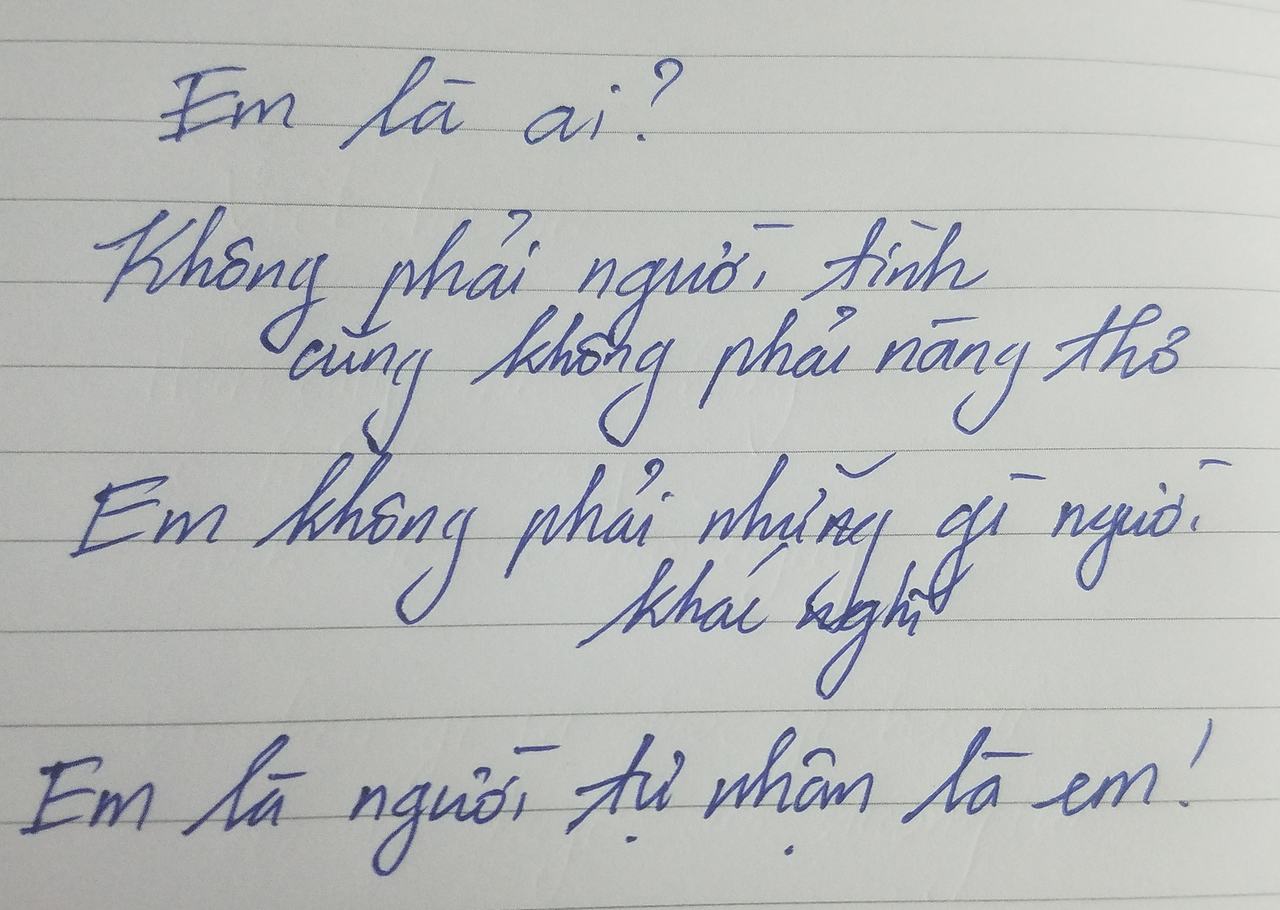 Em là ai?
Không phải người tình
cũng không phải nàng thơ
Em không phải những gì người
khác nghĩ
Em là người tự nhận là em!